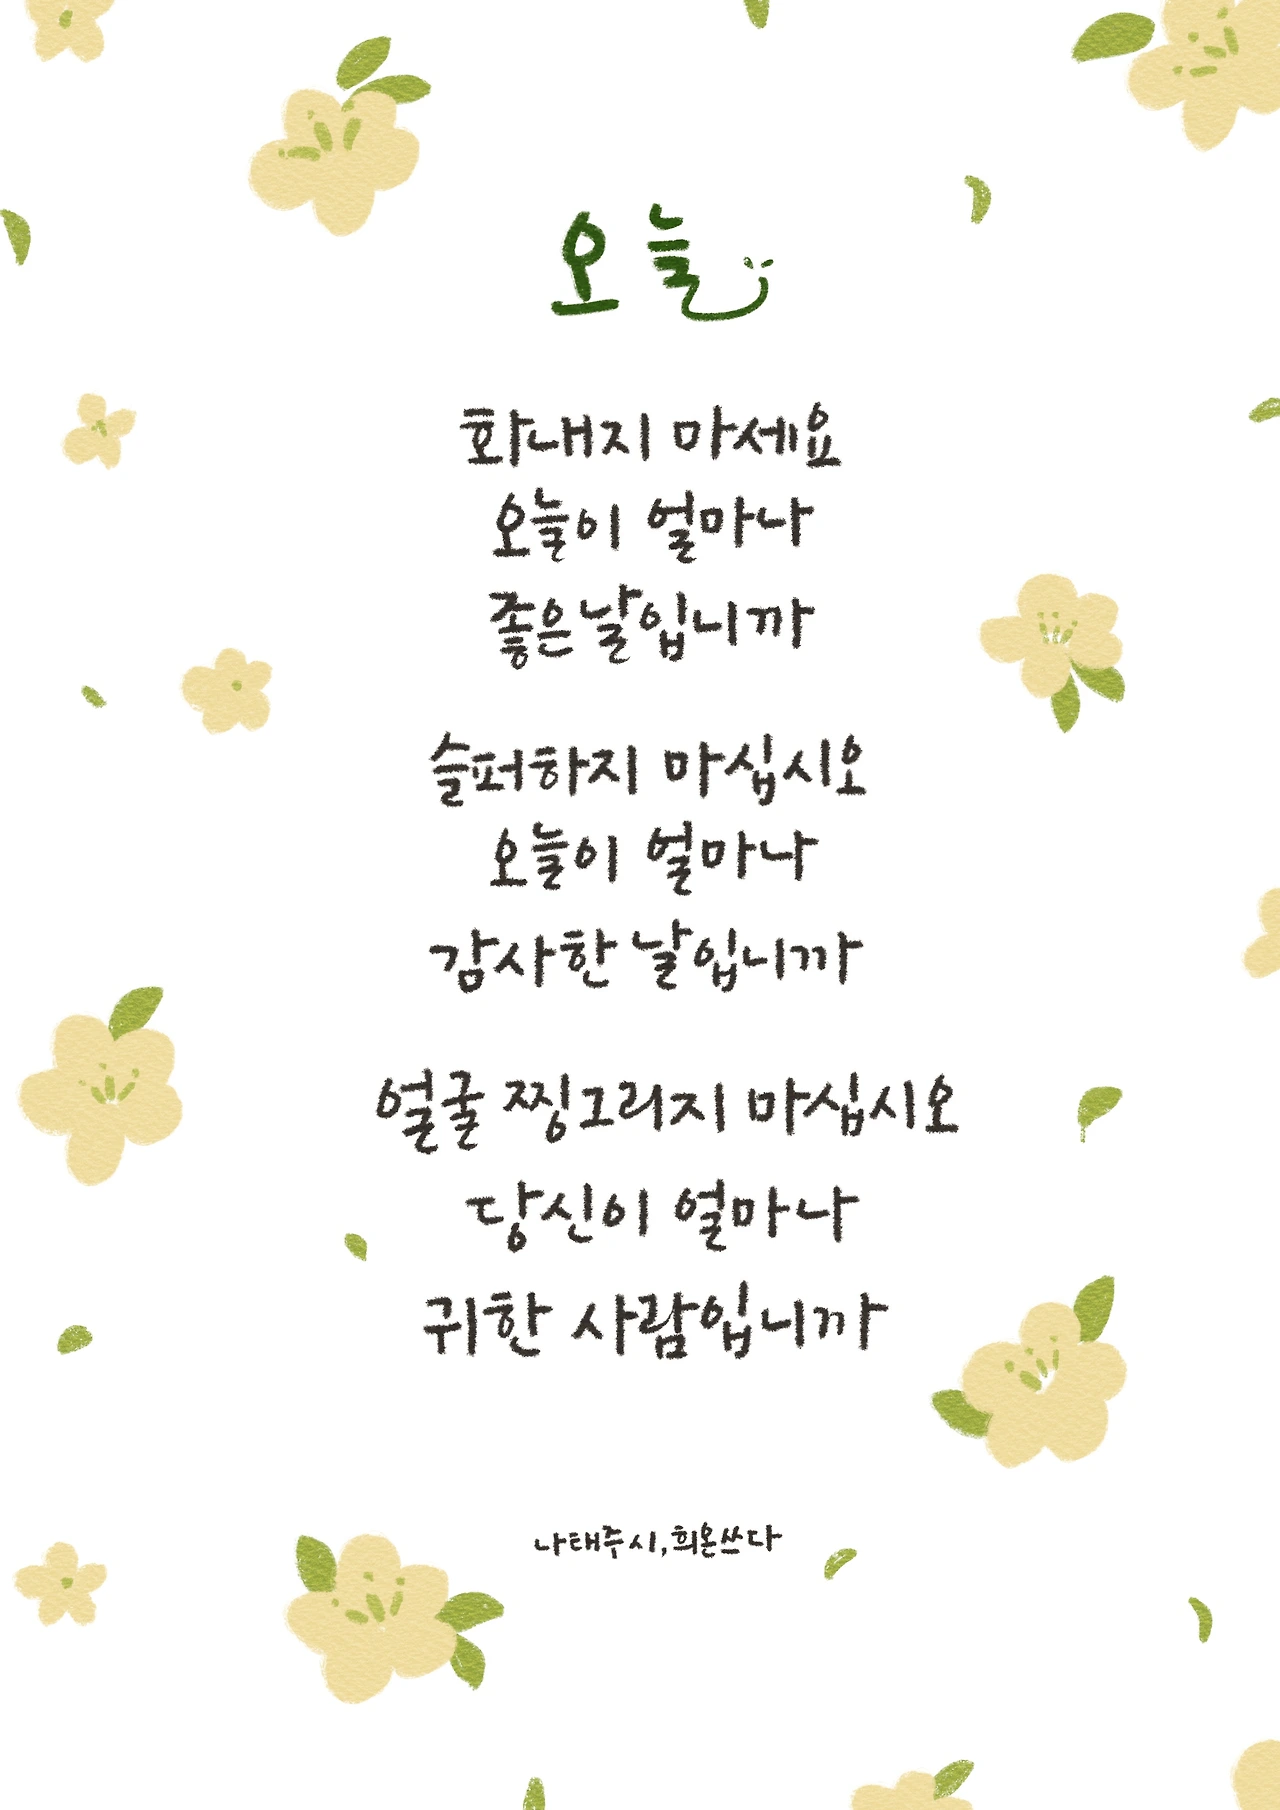 오늘
화내지 마세요
오늘이 얼마나
좋은 날입니까
슬퍼하지 마십시오
오늘이 얼마나
감사한 날입니까
얼굴 찡그리지 마십시오
당신이 얼마나
귀한 사람입니까
나태주 시, 희온 쓰다